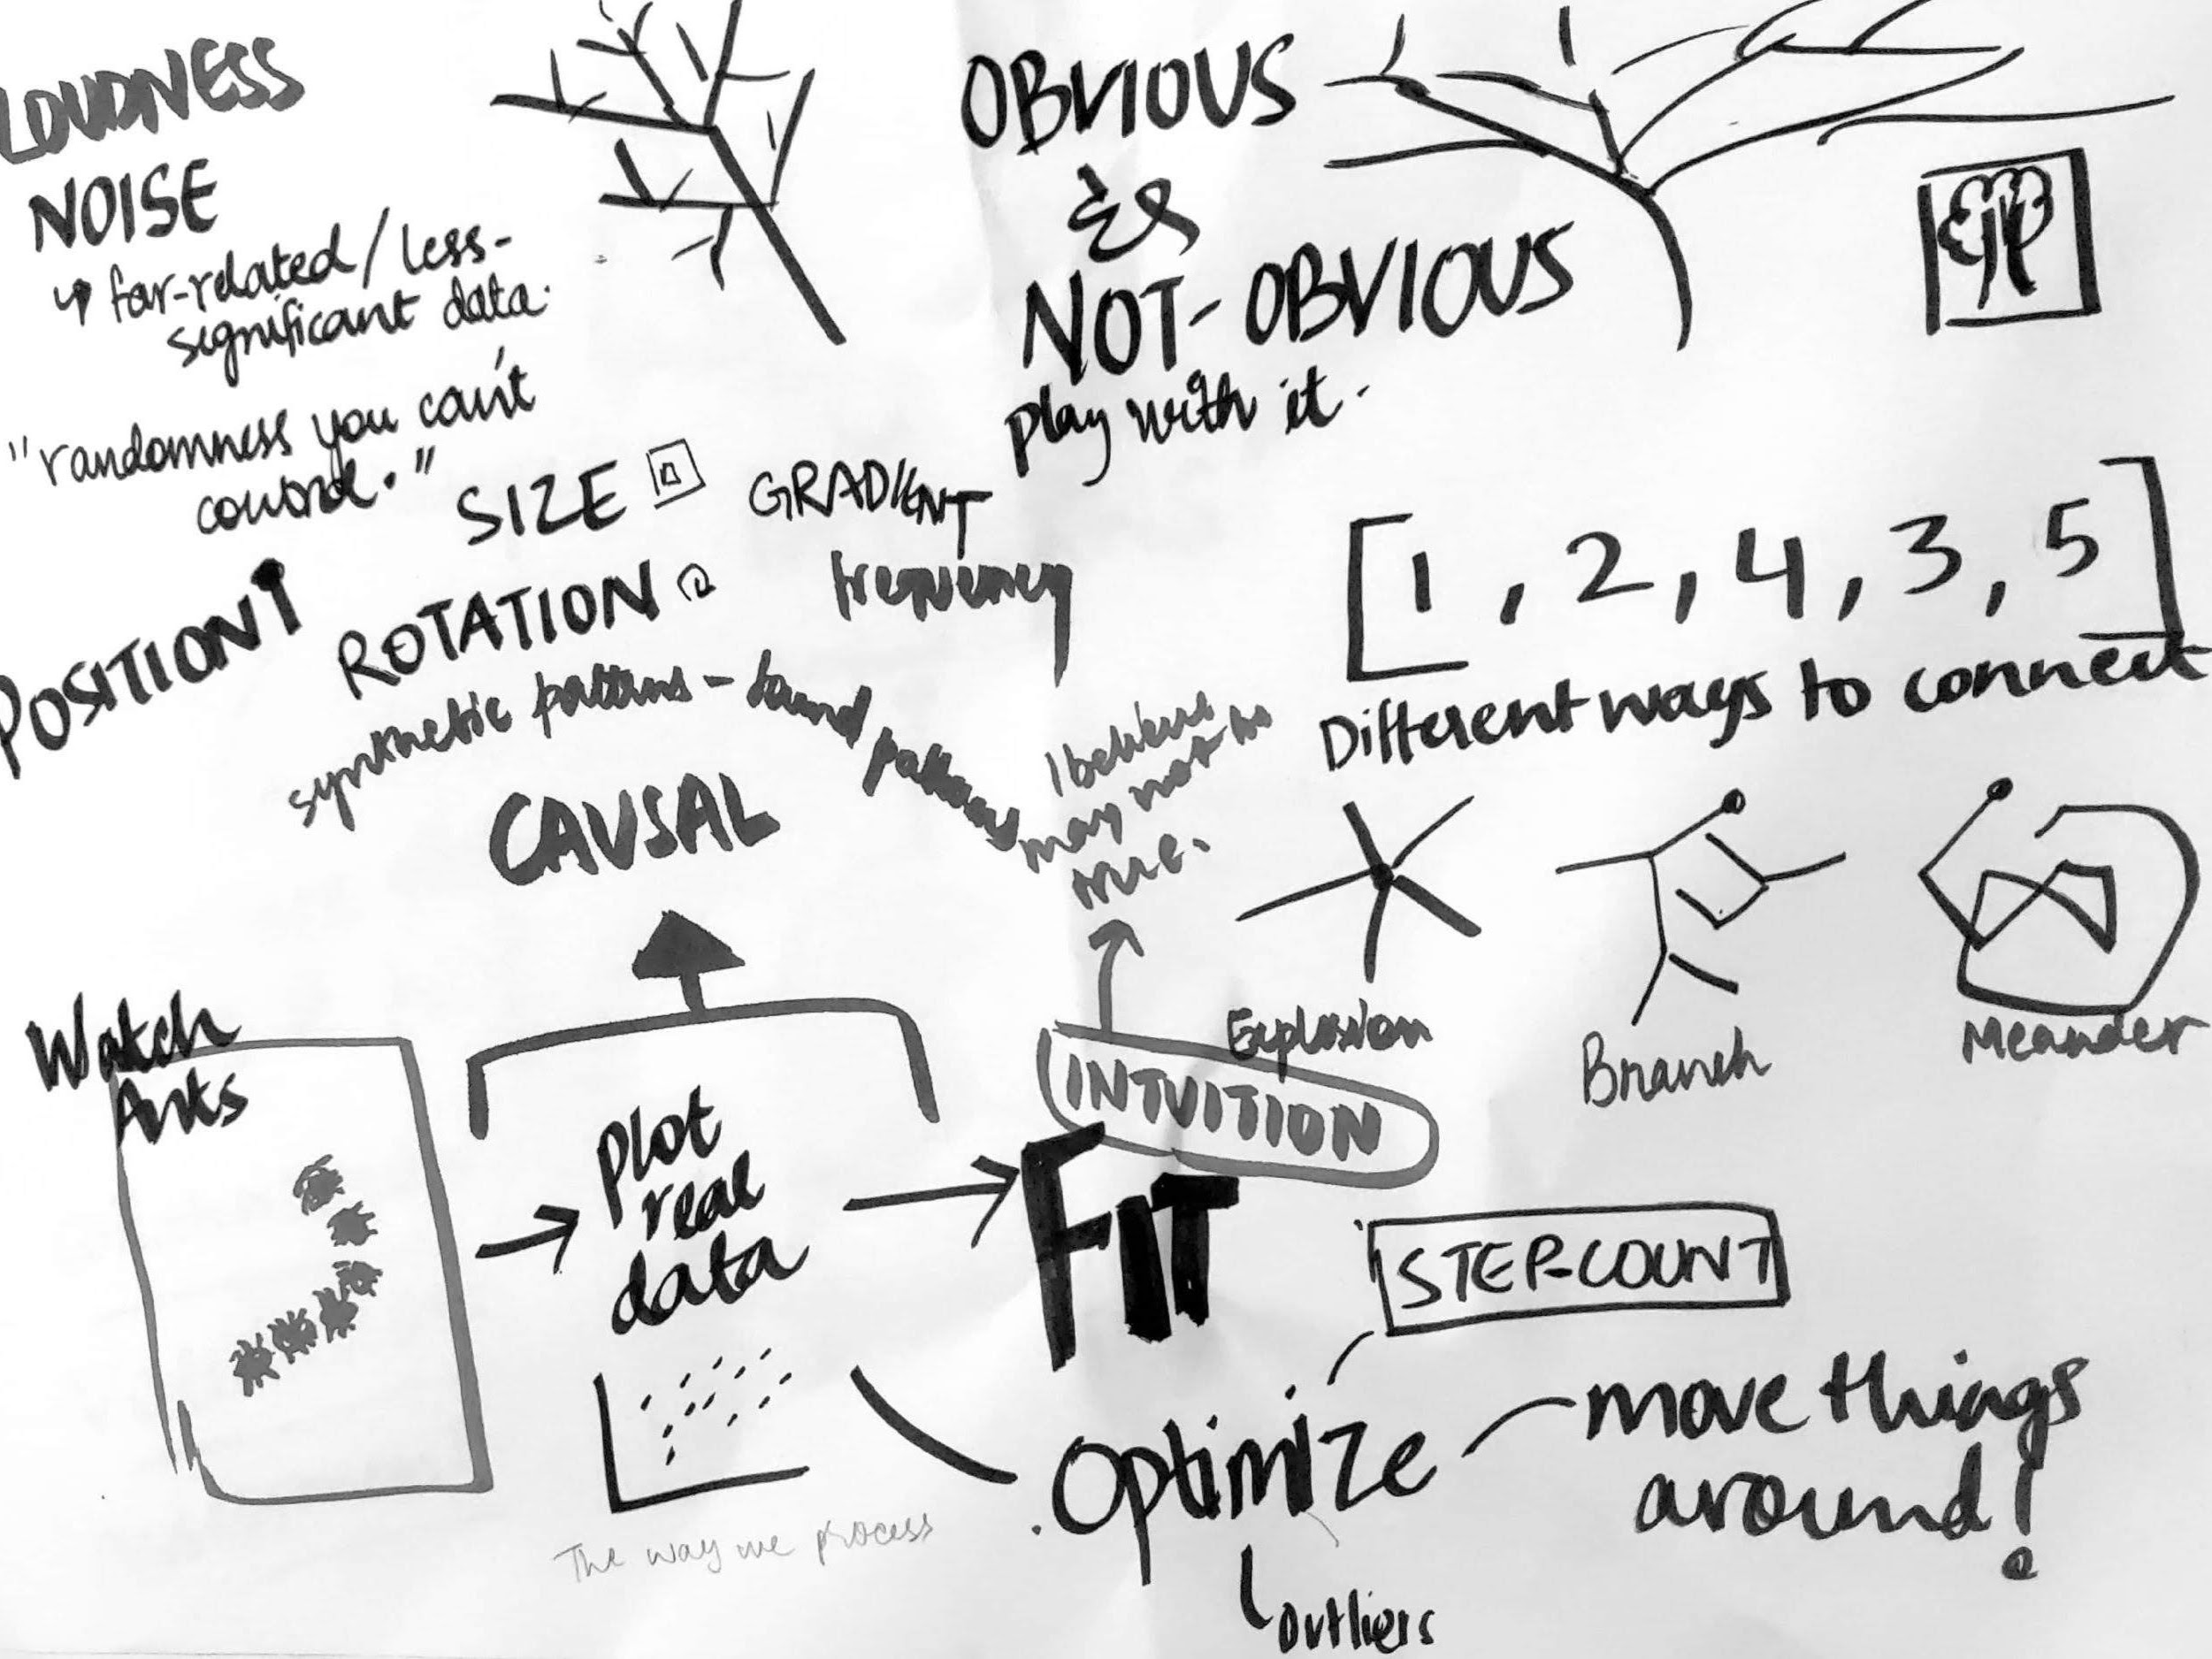 LOUDNESS
NOISE
far-related / less-
significant data.
"randomness you can't
control."
SIZE
GRADIENT
frequency
POSITION
ROTATION
synthetic patterns - sound
patterns
CAUSAL
OBVIOUS
&
NOT-OBVIOUS
play with it.
[1, 2, 4, 3, 5]
Different ways to connect
I believe
may not be
true.
Explosion
Branch
Meander
Watch
Ants
Plot
real
data
The way we process
INTUITION
FIT
STEP-COUNT
Optimize
move things
around!
outliers